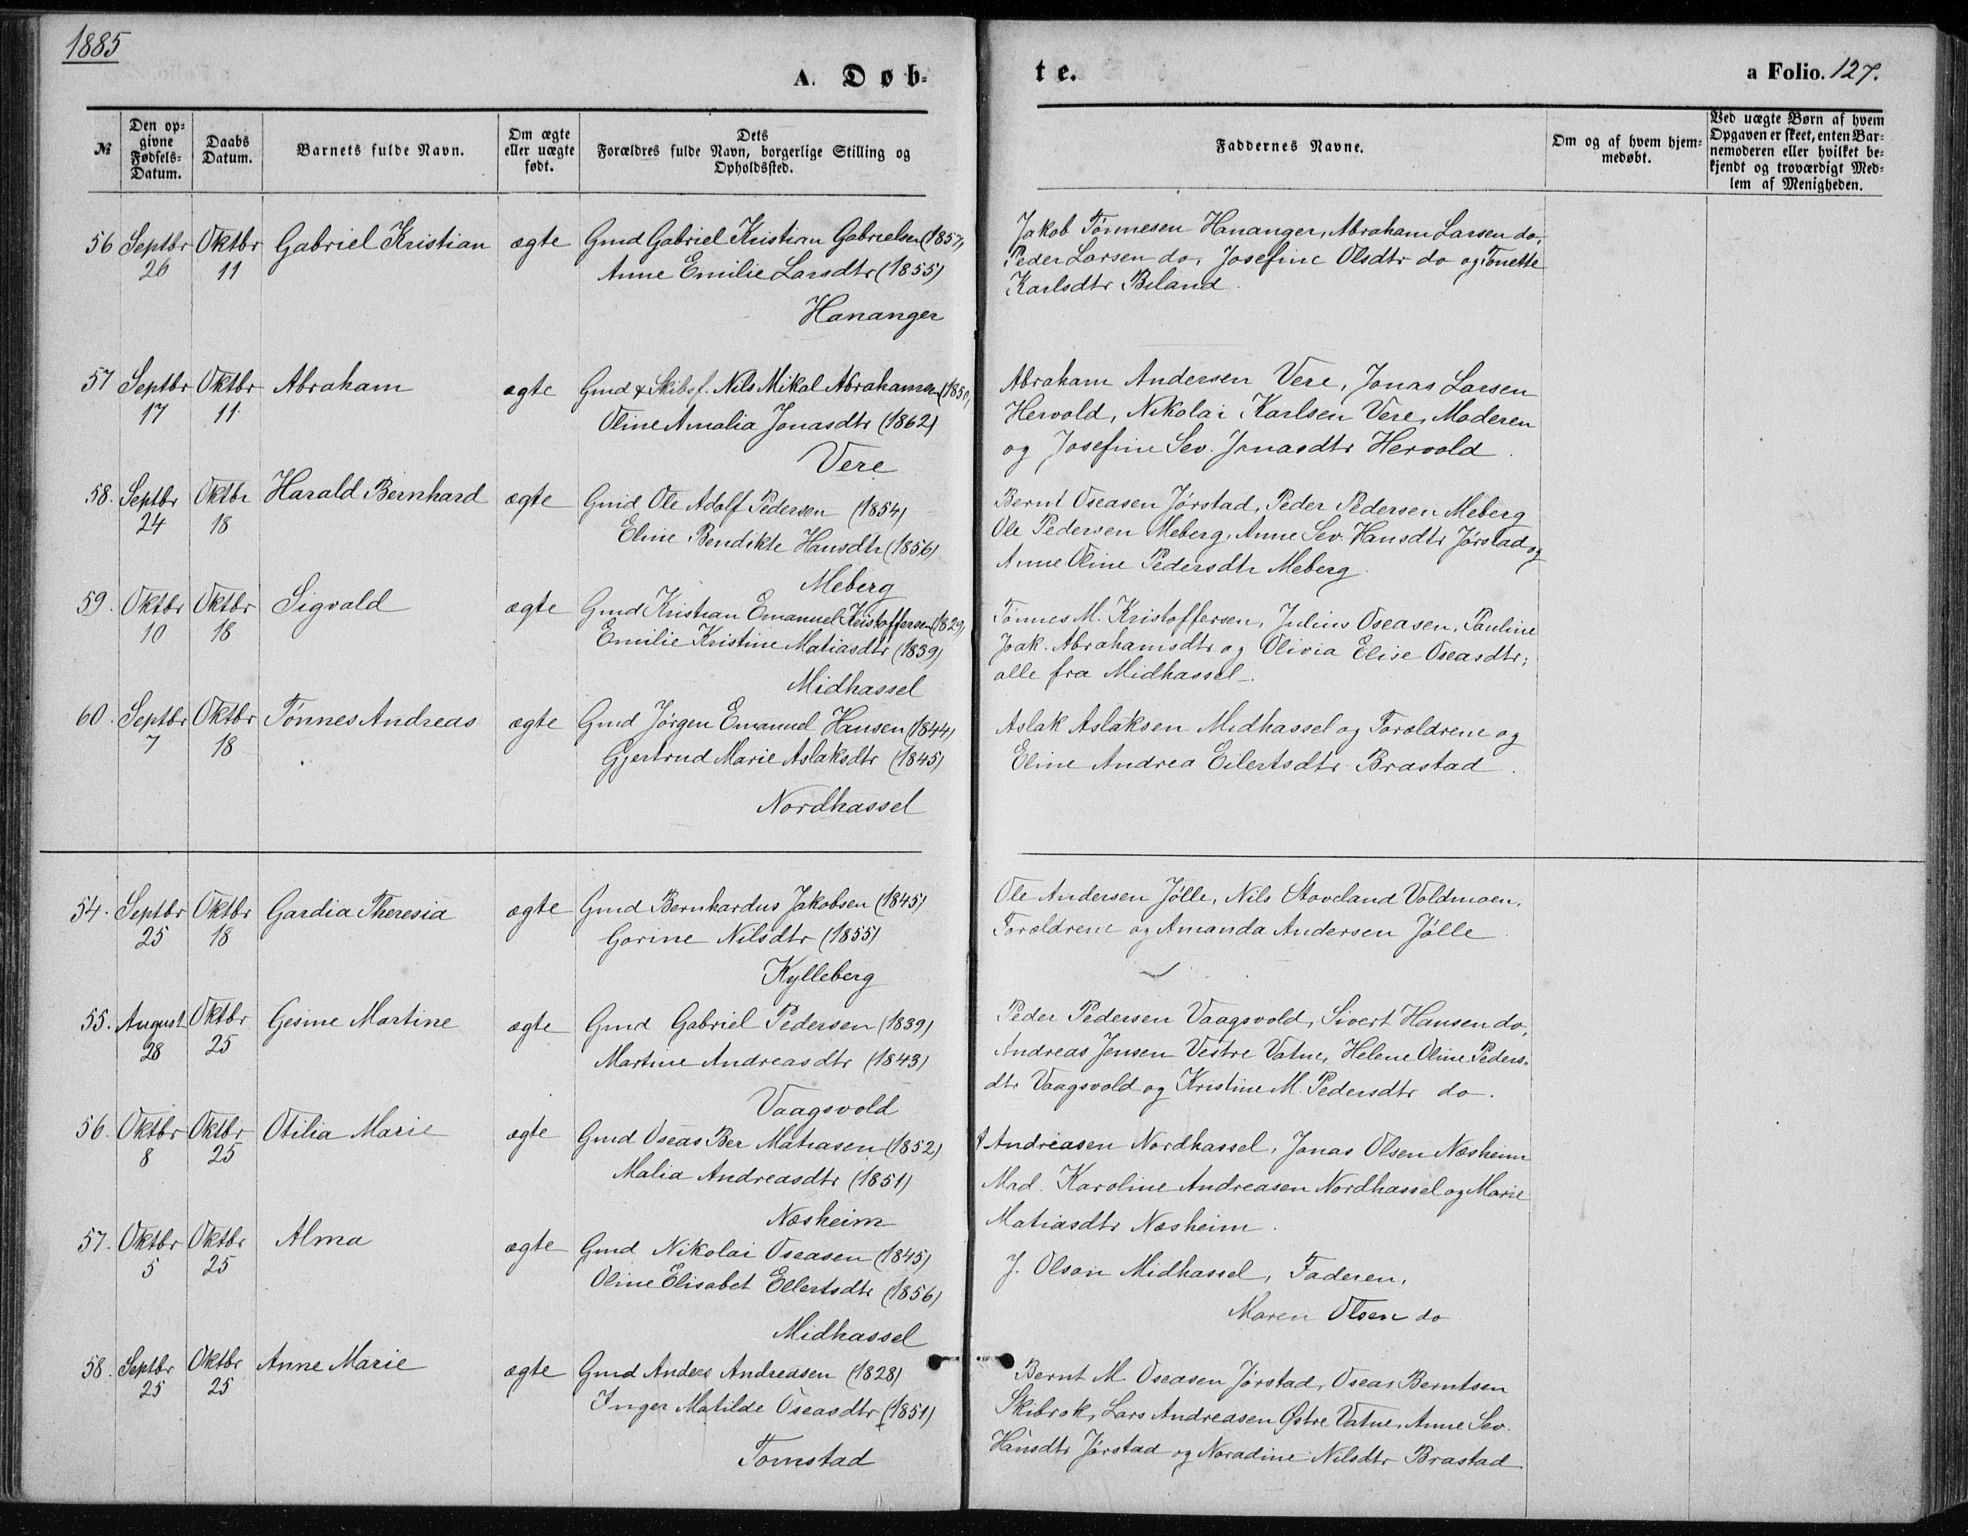 1885
A. Døb-
te.
a Folio. 127.
№
Den op-
givne
Fødsels-
Datum.
Daabs
Datum.
Barnets fulde Navn.
Om ægte
eller uægte
født.
Dets
Forældres fulde Navn, borgerlige Stilling og
Opholdssted.
Faddernes Navne.
Om og af hvem hjem-
medøbt.
Ved uægte Børn af hvem
Opgaven er skeet, enten Bar-
nemoderen eller hvilket be-
kjendt og troværdigt Med-
lem af Menigheden.
56 Septbr 26 Oktbr 11 Gabriel Kristian ægte Gmd Gabriel Kristian Gabrielsen (1857)
Anne Emilie Larsdtr (1855)
Hananger
Jakob Tønnesen Hananger, Abraham Larsen do,
Peder Larsen do, Josefine Olsdtr do og Tonette
Karlsdtr Biland.
57 Septbr 17 Oktbr 11 Abraham ægte Gmd & Skibsf. Nils Mikal Abrahamsen (1850)
Oline Amalia Jonasdtr (1862)
Vere
Abraham Andersen Vere, Jonas Larsen
Hervold, Nikolai Karlsen Vere, Moderen
og Josefine Sev. Jonasdtr Hervold.
58. Septbr 24 Oktbr 18 Harald Bernhard ægte Gmd Ole Adolf Pedersen (1854)
Eline Bendikte Hansdtr (1856)
Meberg
Bernt Oseasen Jørstad, Peder Pedersen Meberg
Ole Pedersen Meberg, Anne Sev. Hansdtr Jørstad og
Anne Oline Pedersdtr Meberg.
59. Oktbr 10 Oktbr 18 Sigvald ægte Gmd Kristian Emanuel Kristoffersen (1829)
Emilie Kristine Matiasdtr (1839)
Midhassel
Tønnes M. Kristoffersen, Julius Oseasen, Pauline
Joak. Abrahamsdtr og Olivia Elise Oseasdtr;
alle fra Midhassel.
60. Septbr 7 Oktbr 18 Tønnes Andreas ægte Gmd Jørgen Emanuel Hansen (1844)
Gjertrud Marie Aslaksdtr (1845)
Nordhassel
Aslak Aslaksen Midhassel og Forældrene og
Eline Andrea Eilertsdtr Brastad.
54. Septbr 25 Oktbr 18 Gardia Theresia ægte Gmd Bernhardus Jakobsen (1845)
Gorine Nilsdtr (1855)
Kylleberg
Ole Andersen Jølle, Nils Stoveland Voldmoen,
Forældrene og Amanda Andersen Jølle
55. August 28 Oktbr 25 Gesine Martine ægte Gmd Gabriel Pedersen (1839)
Martine Andreasdtr (1843)
Vaagsvold
Peder Pedersen Vaagsvold, Sivert Hansen do,
Andreas Jensen Vestre Vatne, Helene Oline Peders-
dtr Vaagsvold og Kristine M. Pedersdtr do.
56. Oktbr 8 Oktbr 25 Otilia Marie ægte Gmd Oseas Ber Matiasen (1852)
Malia Andreasdtr (1851)
Næsheim
A Andreasen Nordhassel, Jonas Olsen Næsheim
Mad. Karoline Andreasen Nordhassel og Marie
Matiasdtr Næsheim.
57. Oktbr 5 Oktbr 25 Alma ægte Gmd Nikolai Oseasen (1845)
Oline Elisabet Ellertsdtr (1856)
Midhassel
J. Olson Midhassel, Faderen,
Maren Olsen do
58. Septbr 25 Oktbr 25 Anne Marie ægte Gmd Anders Andreasen (1828)
Inger Matilde Oseasdtr (1851)
Tomstad
Bernt M Oseasen Jørstad, Oseas Berntsen
Skibrok, Lars Andreasen Østre Vatne, Anne Sev.
Hansdtr Jørstad og Noradine Nilsdtr Brastad.